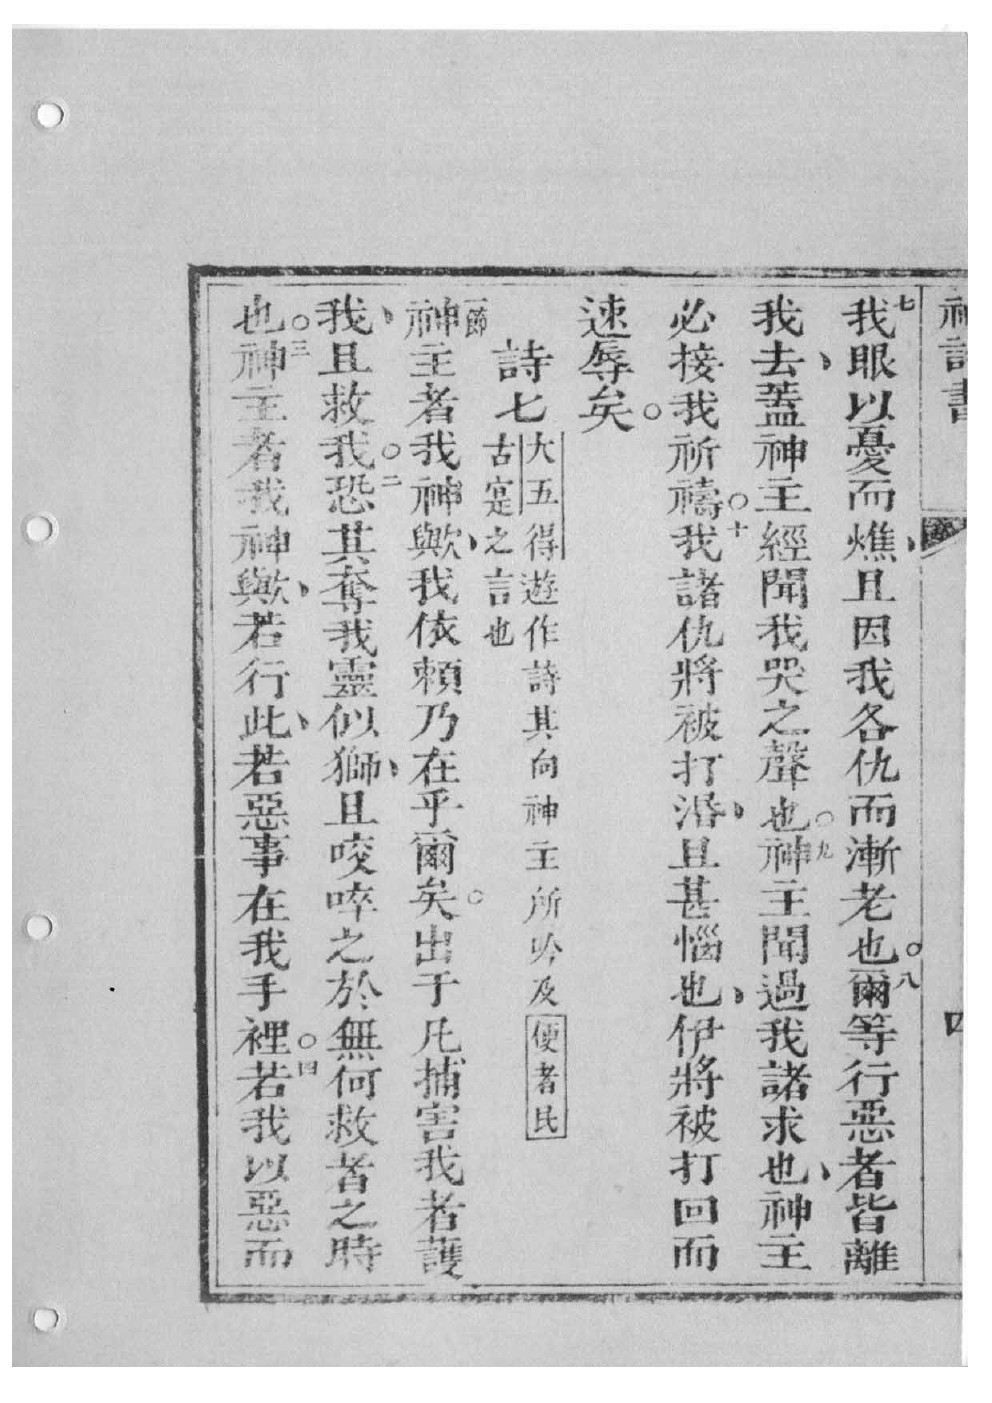 神詩書
四
七我眼以憂而燋、且因我各仇而漸老也。八爾等行惡者皆離
我去、蓋神主經聞我哭之聲也。九神主聞過我諸求也、神主
必接我祈禱。十我諸仇將被打滑、且甚惱也、伊將被打回而
速辱矣。
詩七
大五得遊作詩其向神主所吟及便者民
古寔之言也
一節神主者我神歟、我依賴乃在乎爾矣。出于凡捕害我者護
我、且救我。二恐其奪我靈似獅、且咬啐之於無何救者之時
也。三神主者我神歟、若行此、若惡事在我手裡。四若我以惡而